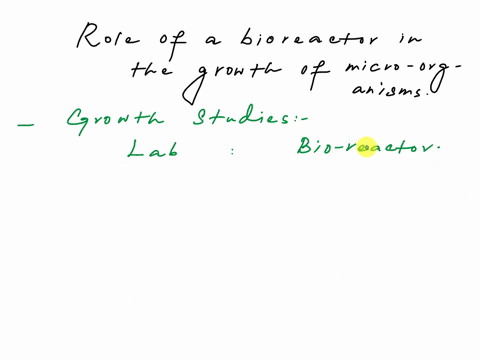 Role of a bioreactor in
the growth of micro-org-
anisms.
- Cgrowth Studies:-
Lab : Bio-reactor.